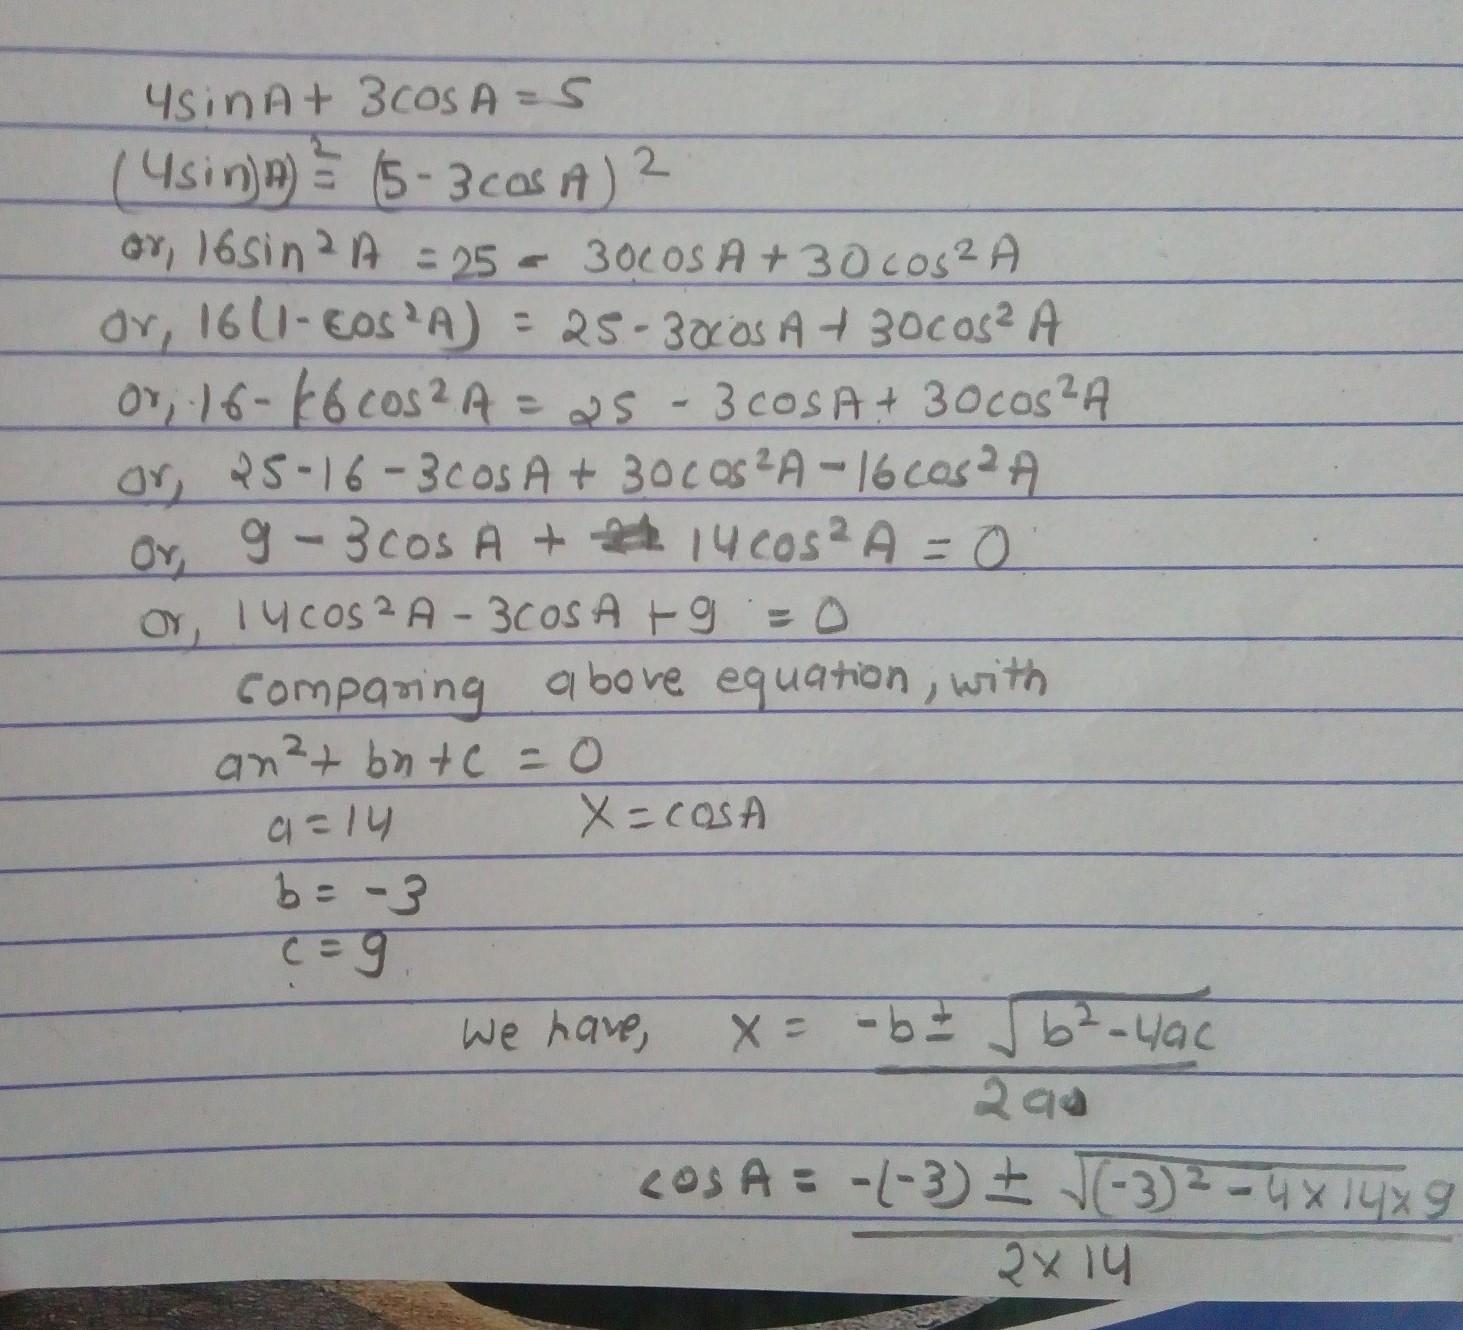 4sinA + 3cosA = 5
(4sin)A)² = (5-3cosA)²
or, 16sin²A = 25 - 30cosA + 30cos²A
or, 16(1-cos²A) = 25-30cosA + 30cos²A
or, 16-16cos²A = 25 - 3cosA + 30cos²A
or, 25-16-3cosA + 30cos²A-16cos²A
or, 9-3cosA + 14cos²A = 0
or, 14cos²A-3cosA+9 = 0
comparing above equation, with
ax²+bx+c = 0
a=14 X=cosA
b= -3
c=9
we have, x = -b ± √b²-4ac
2a
cosA = -(-3) ± √(-3)²-4x14x9
2x14